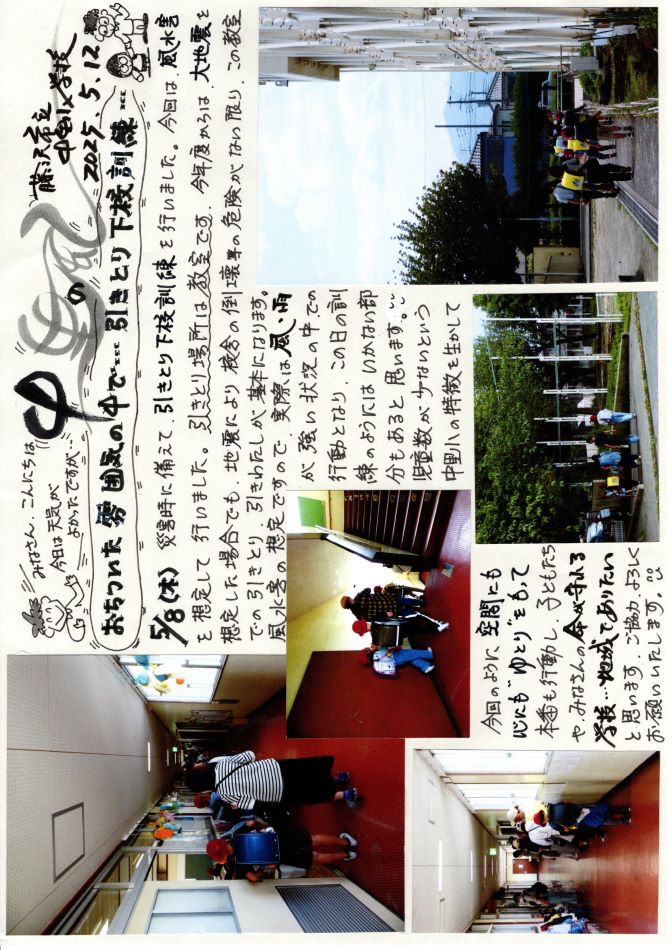 中里の風
藤沢市立
中里小学校
2025.5.12
みなさん、こんにちは
今日は天気が
よかったですが…
おちついた雰囲気の中で…引きとり下校訓練…
5/8(木) 災害時に備えて、引きとり下校訓練を行いました。今回は、風水害
を想定して行いました。引きとり場所は教室です。今年度からは、大地震を
想定した場合でも、地震により校舎の倒壊等の危険がない限り、この教室
での引きとり、引きわたしが基本になります。
風水害の想定ですので、実際は風・雨
が強い状況の中での
行動となり、この日の訓
練のようにはいかない部
分もあると思います。
児童数が少ないという
中里小の特徴を生かして
今回のように空間にも
心にも"ゆとり"をもって
本番も行動し、子どもたち
や、みなさんの命が守れる
学校…地域でありたい
と思います。ご協力よろしく
お願いいたします。